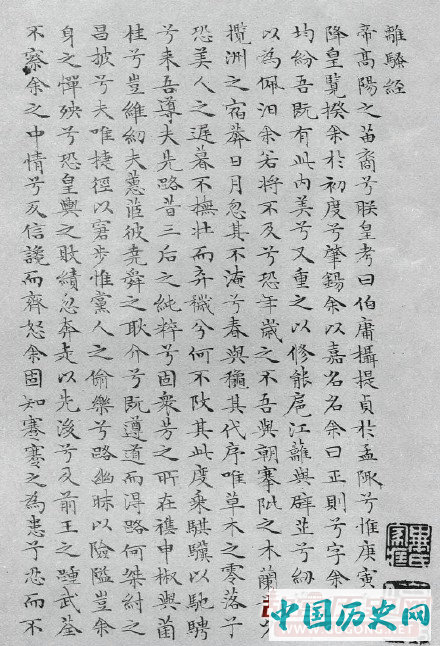 離騷經
帝高陽之苗裔兮朕皇考曰伯庸攝提貞於孟陬兮惟庚寅
降皇覽揆余於初度兮肇錫余以嘉名名余曰正則兮字余
均紛吾既有此內美兮又重之以修能扈江離與辟芷兮紉
以為佩汩余若將不及兮恐年歲之不吾與朝搴阰之木蘭
攬洲之宿莽日月忽其不淹兮春與龝其代序唯草木之零落兮
恐美人之遲暮不撫壯而弃穢兮何不改其此度乘騏驥以馳騁
兮来吾導夫先路昔三后之純粹兮固衆芳之所在襍申椒與菌
桂兮豈維紉夫蕙茝彼堯舜之耿介兮既遵道而得路何桀紂之
昌披兮夫唯捷徑以窘步惟黨人之偷樂兮路幽昧以險隘豈余
身之憚殃兮恐皇輿之敗績忽奔走以先後兮及前王之踵武荃
不察余之中情兮反信讒而齊怒余固知謇謇之為患兮忍而不
中国历史网